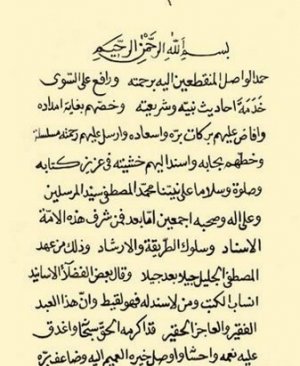 بسم الله الرحمن الرحيم
حمدا لواصل المنقطعين اليه برحمته ورافع على السوى
خدمة احاديث نبيه وشريعته وخصهم بغاية امداده
وافاض عليهم بركات بره واسعاده وارسل عليهم رحمته مسلسلة
وخطهم بجنابه واسند اليهم خشيته في عزيز كتابه
وصلوة وسلاما على نبينا محمد المصطفى سيد المرسلين
وعلى اله وصحبه اجمعين اما بعد فمن شرف هذه الامة
الاسناد وسلوك الطريقة والارشاد وذلك من عهد
المصطفى الجليل جيلا بعد جيلا وقال بعض الفضلا الاسانيد
انساب الكتب ومن لا سند له فهو لقيط وان هذا العبد
الفقير والعاجز الحقير قد اكرمه الحق سبحا واغدق
عليه نعمه واحسانا واوصل خيره العميم اليه وضاعف بره